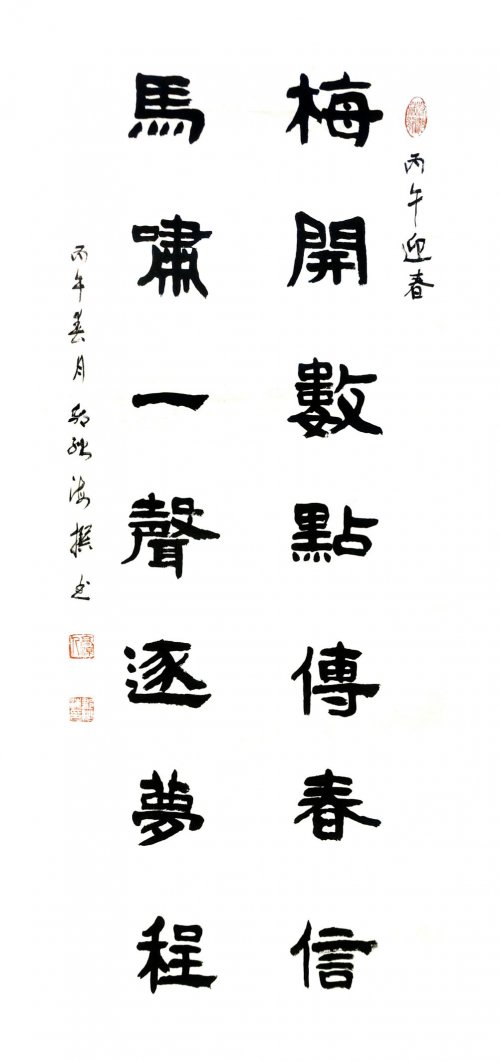 丙午迎春
梅開數點傳春信
馬嘯一聲逐夢程
丙午春月 海撰书